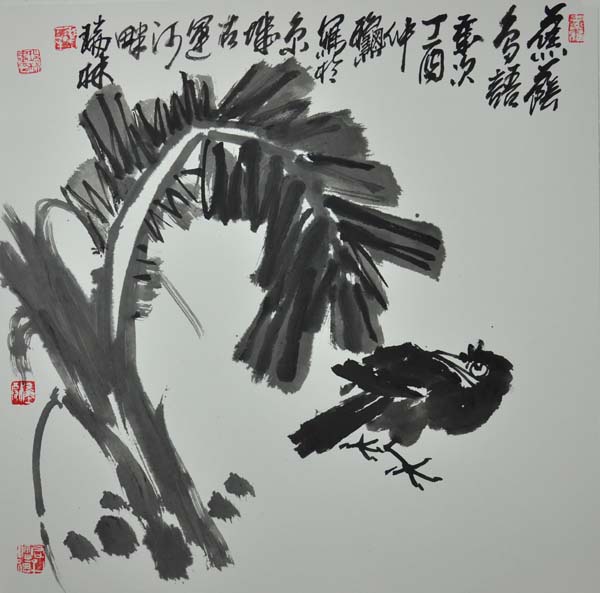 蕉蔭
鳥語
歲次
丁酉
仲
龝
寫於
京
城
古
運
河
畔
瑞林